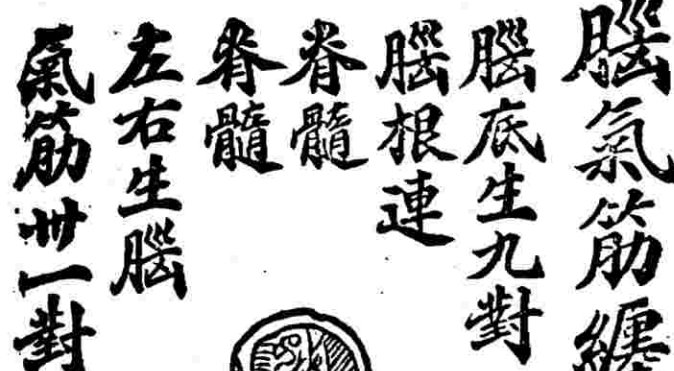 腦氣筋纏
腦底生九對
腦根連
脊髓
脊髓
左右生腦
氣筋卅一對